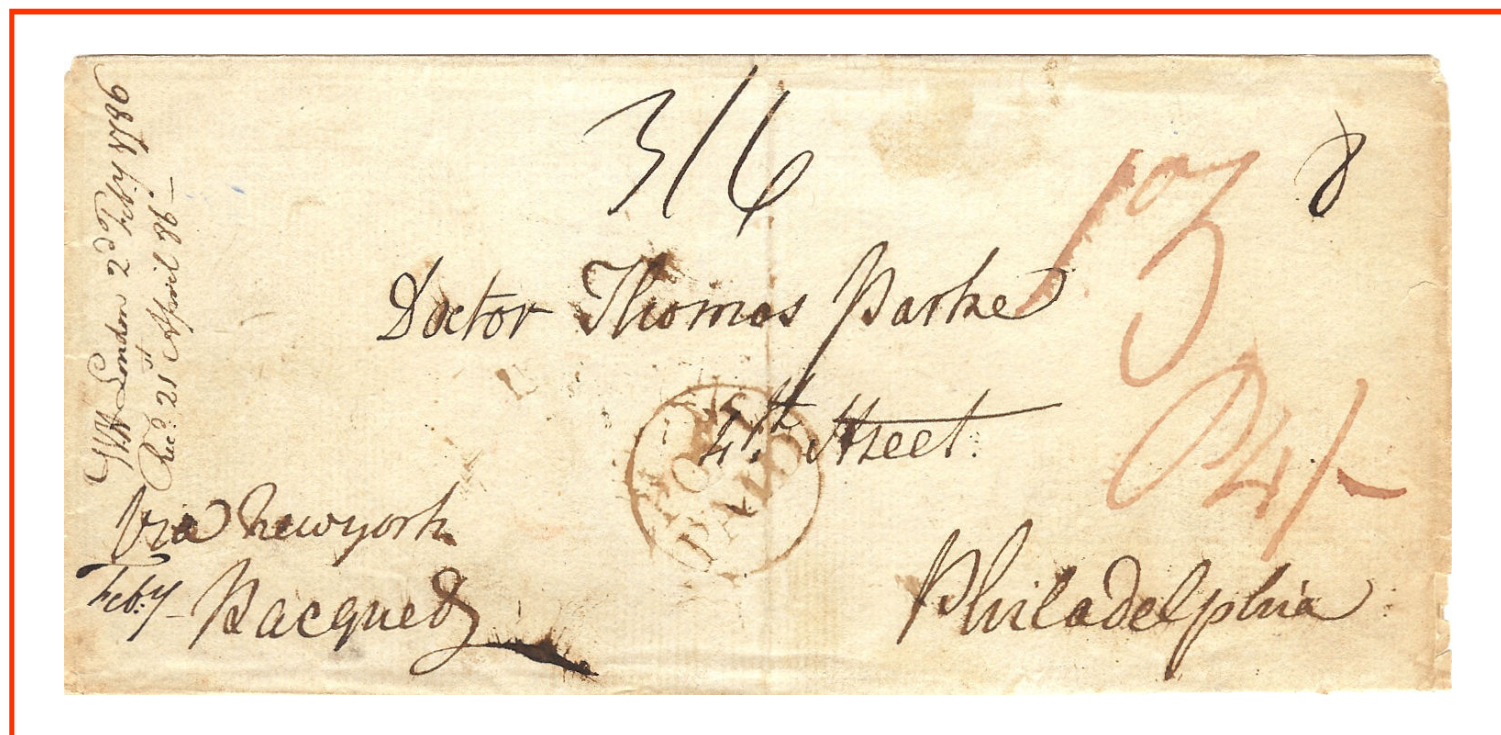 London 2d Feb:y 1786
Recd: 21st April 86 —
3/6
8
Doctor Thomas Parke
4th Street.
POST
PAID
P4/-
Via Newyork
Feb:y Pacquet
Philadelphia